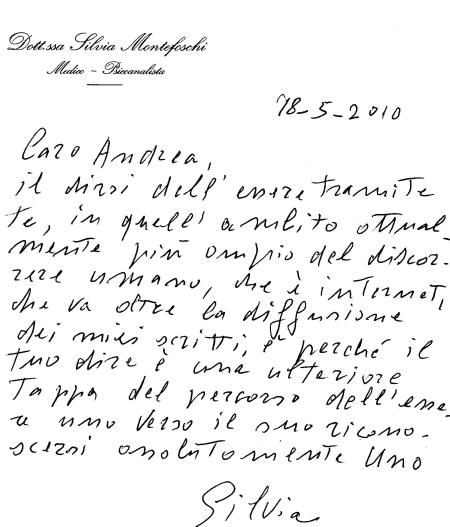 Dott.ssa Silvia Montefoschi
Medico ~ Psicoanalista
18-5-2010
Caro Andrea,
il dirsi dell'essere tramite
te, in quell'ambito attual-
mente più ampio del discor-
rere umano, che è internet,
che va oltre la diffusione
dei miei scritti, è perché il
tuo dire è una ulteriore
tappa del percorso dell'esse-
re uno verso il suo ricono-
scersi assolutamente Uno
Silvia